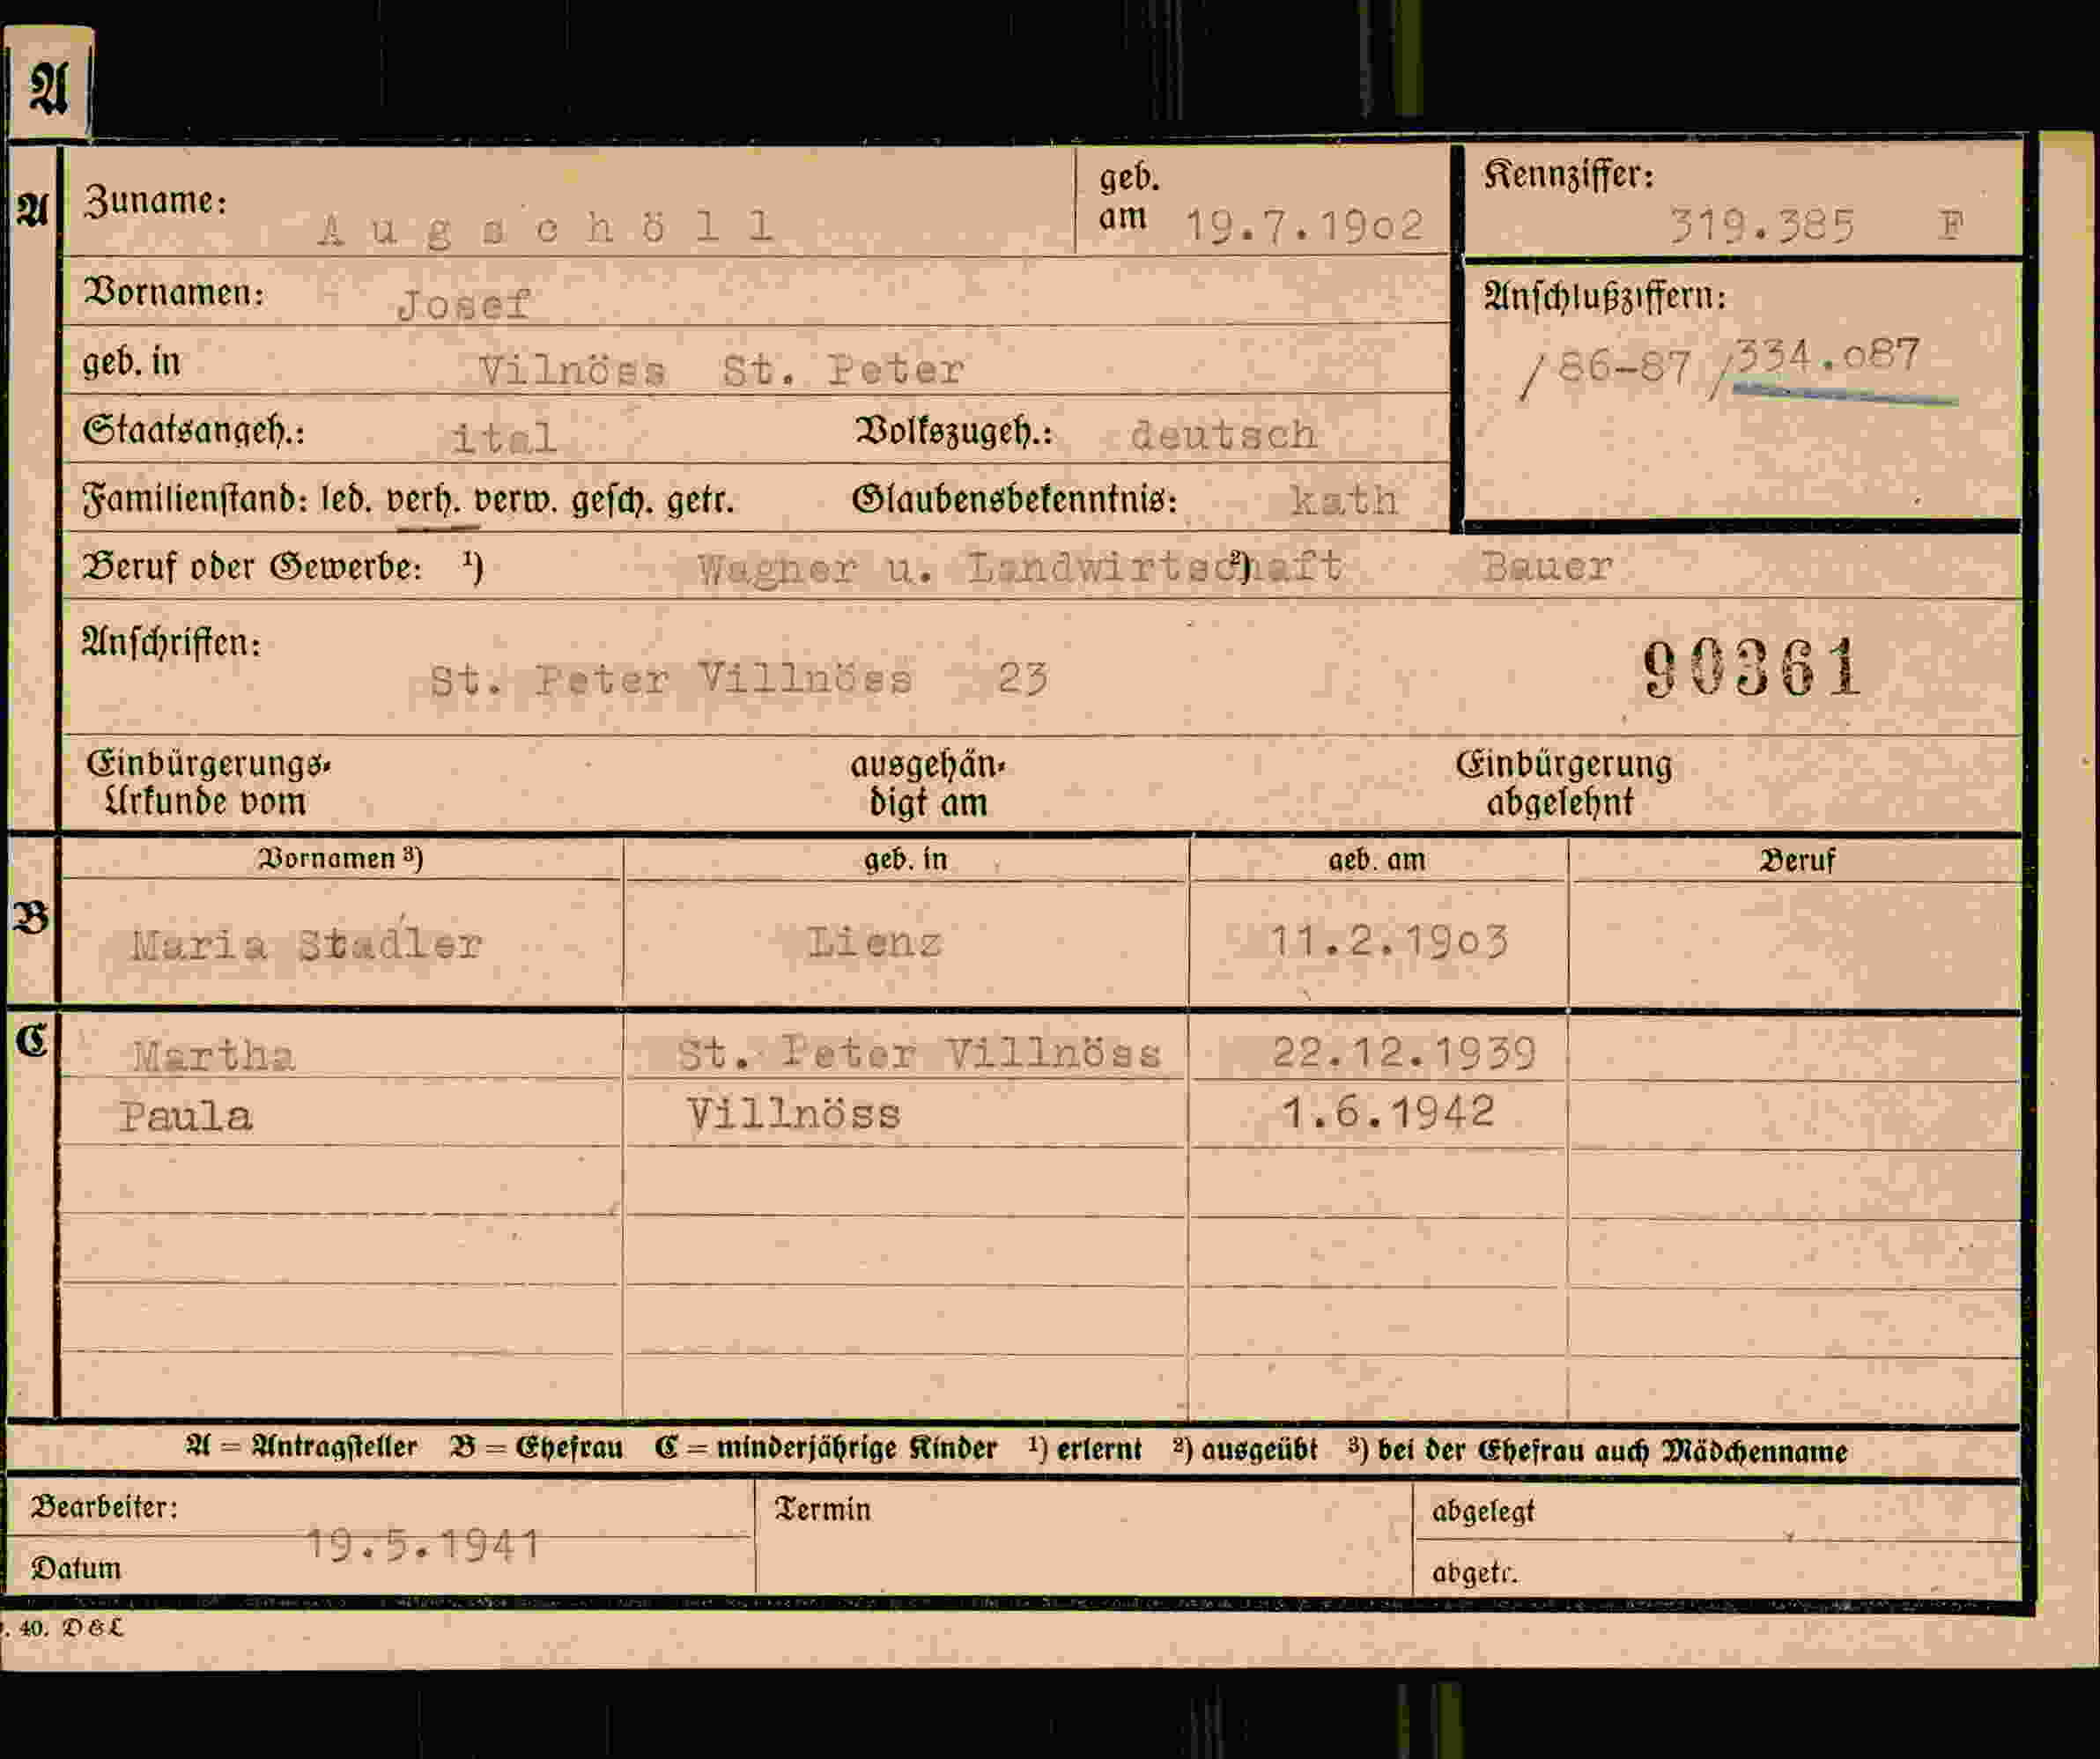 A
A Zuname: Augschöll geb. am 19.7.19o2 Kennziffer: 319.385 F
Vornamen: Josef Anschlußziffern:
/86-87 /334.o87
geb. in Vilnöss St. Peter
Staatsangeh.: ital Volkszugeh.: deutsch
Familienstand: led. verh. verw. gesch. getr. Glaubensbekenntnis: kath
Beruf oder Gewerbe: ¹) Wagner u. Landwirtschaft ²) Bauer
Anschriften: St. Peter Villnöss 23 90361
Einbürgerungs- ausgehän- Einbürgerung
Urkunde vom digt am abgelehnt
Vornamen ³) geb. in geb. am Beruf
B Maria Stadler Lienz 11.2.19o3
C Martha St. Peter Villnöss 22.12.1939
Paula Villnöss 1.6.1942
A = Antragsteller B = Ehefrau C = minderjährige Kinder ¹) erlernt ²) ausgeübt ³) bei der Ehefrau auch Mädchenname
Bearbeiter: Termin abgelegt
19.5.1941
Datum abgetr.
. 40. D & L